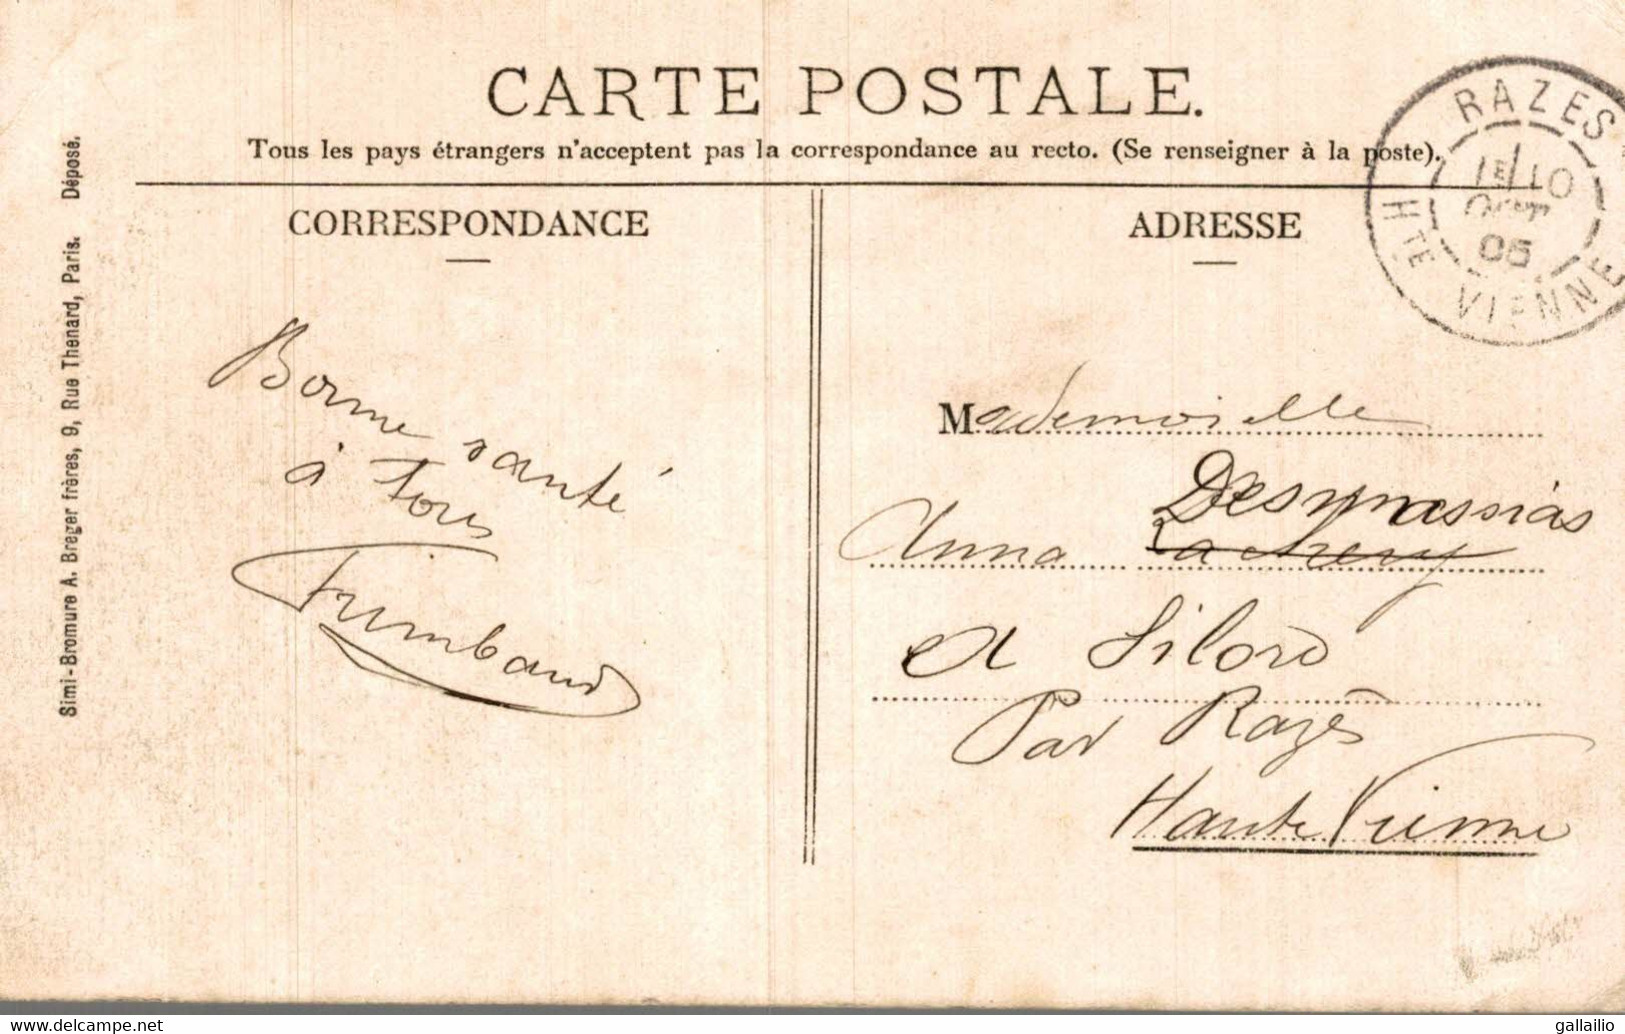 CARTE POSTALE.
Tous les pays étrangers n'acceptent pas la correspondance au recto. (Se renseigner à la poste).
CORRESPONDANCE
Bonne santé
à tous
Frimbaud
ADRESSE
Mademoiselle
Desmassias
Anna
A Silord
Par Razès
Haute Vienne
RAZES
HTE VIENNE
1E/10
05
Simi-Bromure A. Breger frères, 9, Rue Thenard, Paris. Déposé.
delcampe.net
gallailio